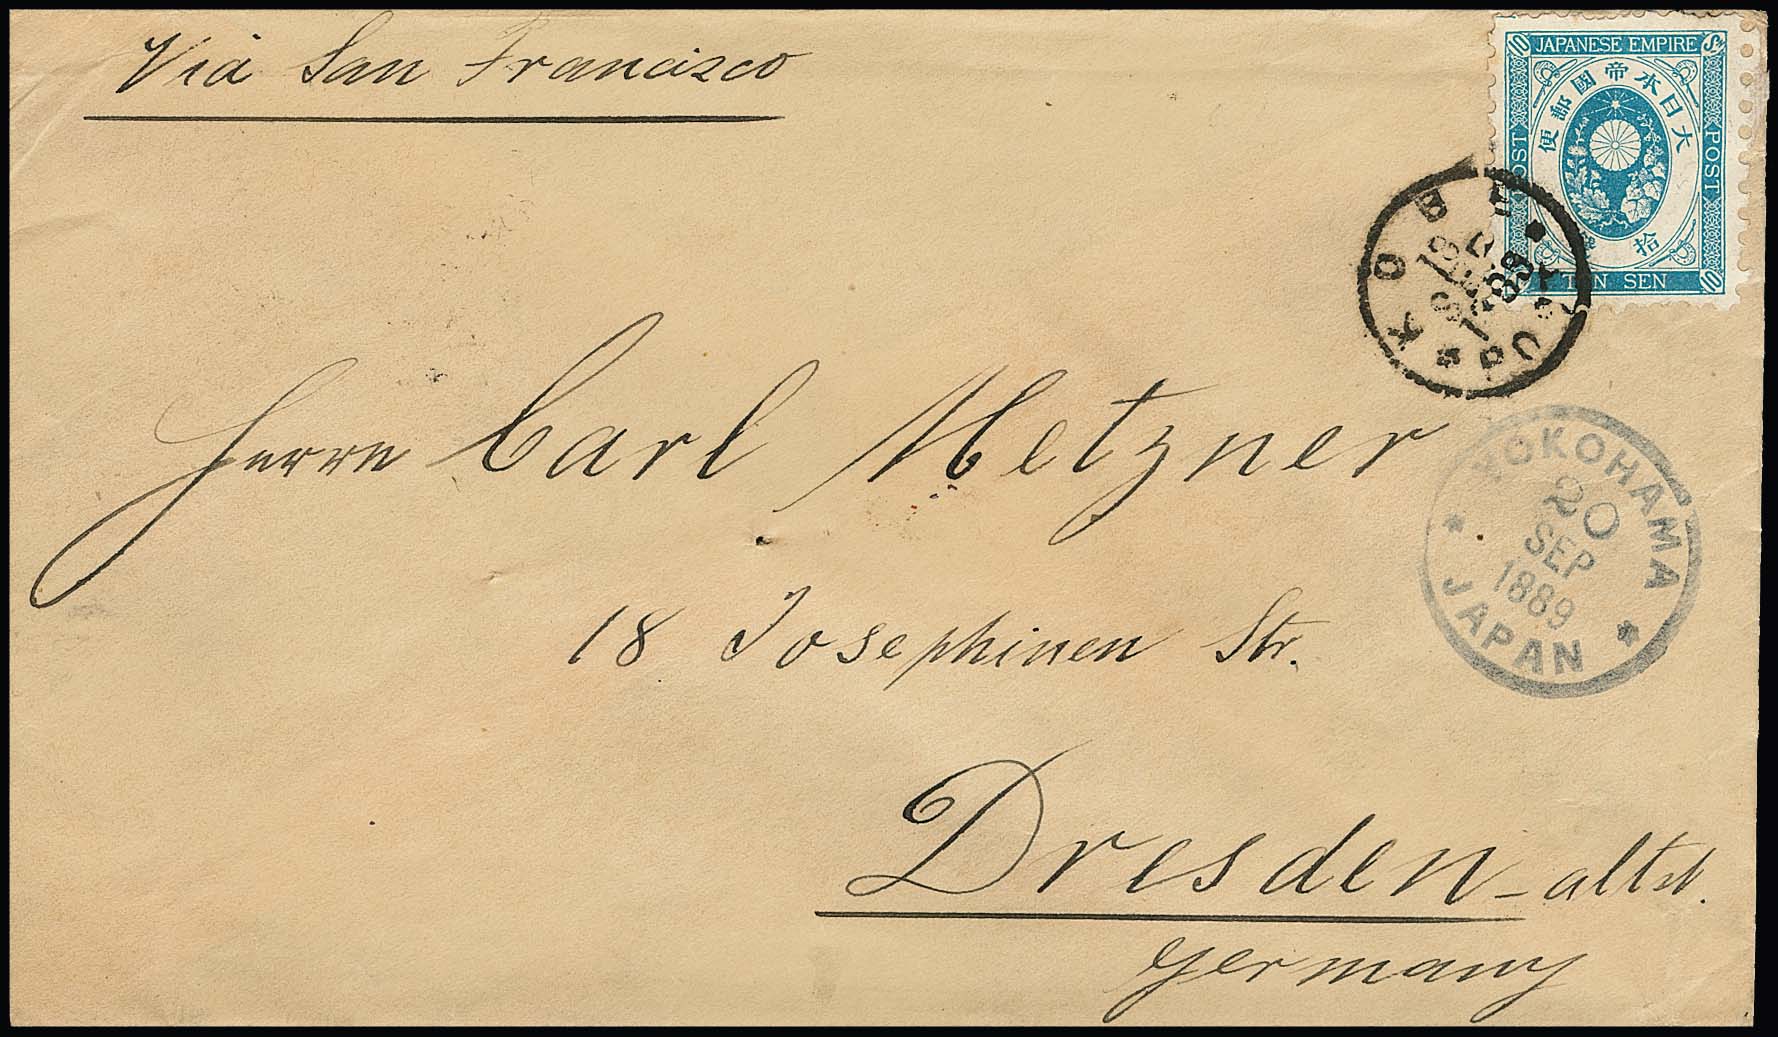 Via San Francisco
10 JAPANESE EMPIRE S
大日本帝國郵便
POST
POST
拾
TEN SEN 10
KOBE
18
SEP
PO
Herrn Carl Metzner
YOKOHAMA
20
SEP
1889
JAPAN
18 Josephinen Str.
Dresden - altst.
Germany